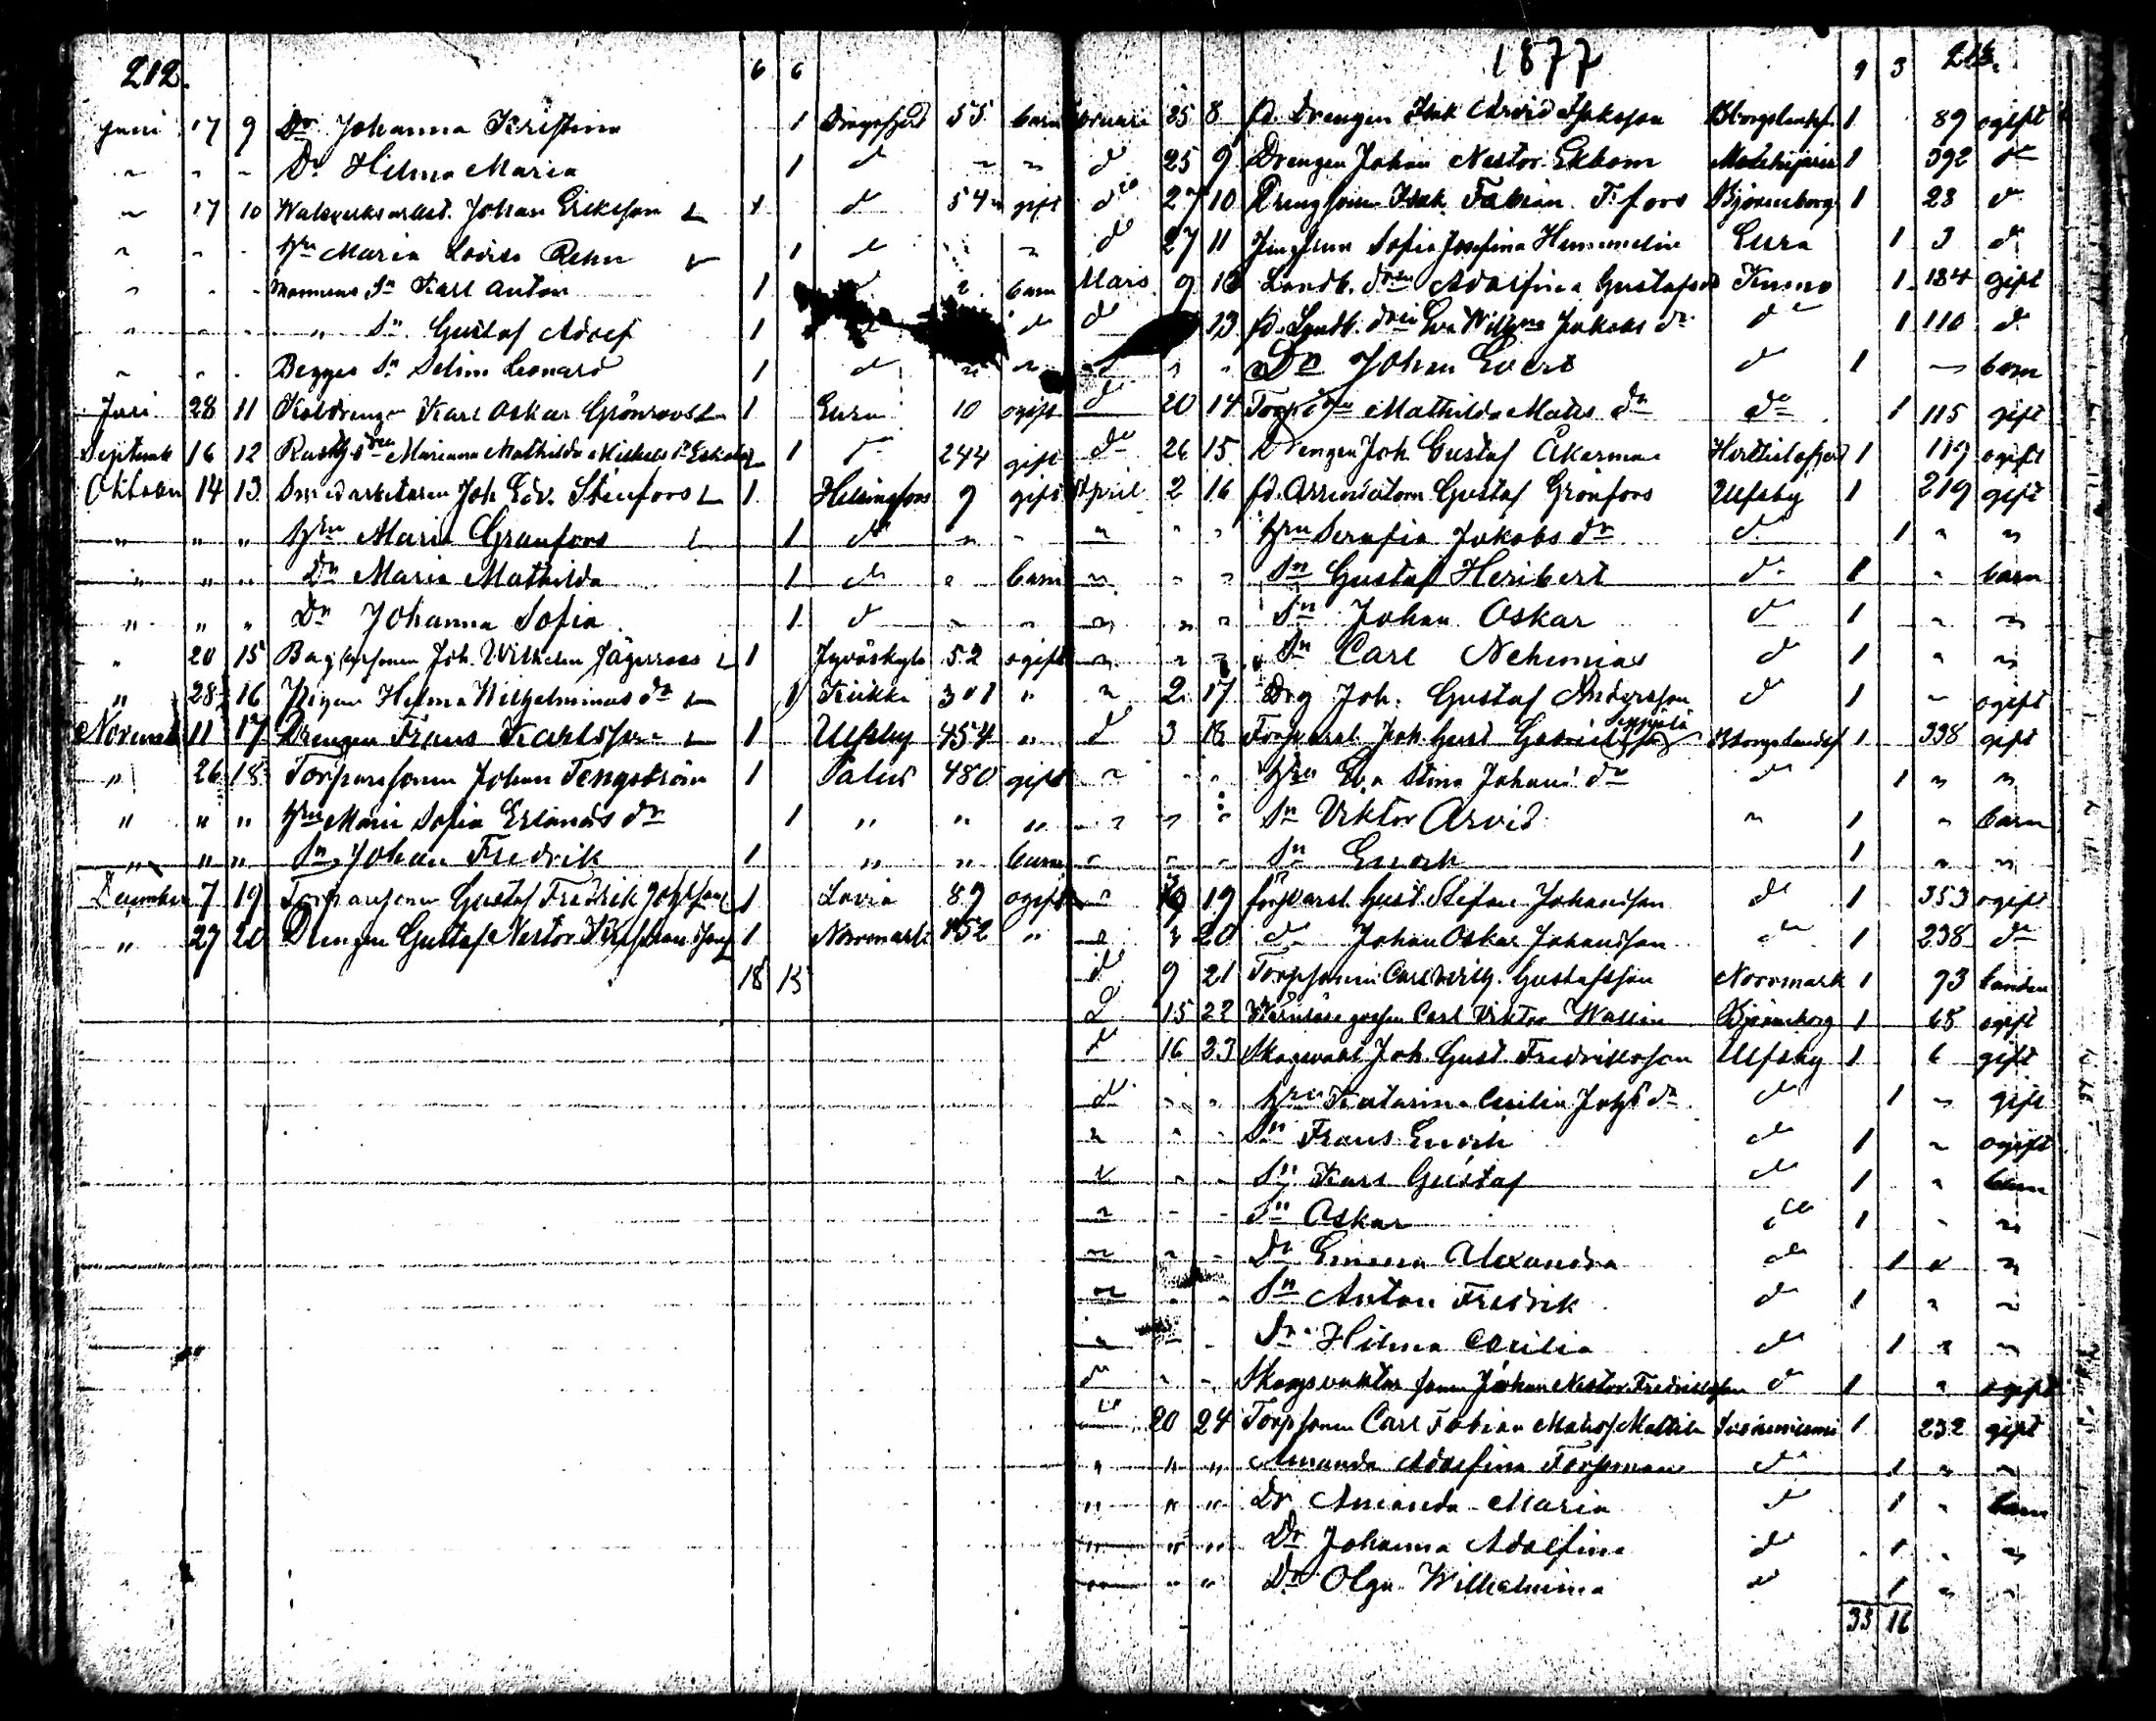 212. 6 6
Juni 17 9 Dr Johanna Kristina 1 Dragsfjerd 55 barn
" - - Dr Hilma Maria 1 d " "
" 17 10 Walsverksarbet. Johan Eriksson 1 d 54 gift
" - - Hru Maria Lovisa Rehn 1 d " "
" - - Mannens Sn Karl Anton 1 d " barn
" - - " Sn Gustaf Adolf 1 d d
" - - Begges Sn Selim Leonard 1 d " "
Juni 28 11 Karl Oskar Grönroos 1 Eura 10 ogift
Septemb 16 12 Marianna Mathilda Mikels dr 1 d 244 gift
Oktober 14 13 Smedarbetaren Joh Edv. Stenfors 1 Helsingfors 9 gift
" " " Hru Maria Granfors 1 d " "
" " " Dr Maria Mathilda 1 d " barn
" " " Dr Johanna Sofia 1 d " "
" 20 15 Joh. Wilhelm Jägerroos 1 Jyväskylä 52 ogift
" 28 16 Pigan Helma Wilhelmina dr 1 Kiikka 301 "
Novemb 11 17 Drengen Frans Karlsson 1 Ulfsby 454 "
" 26 18 Torparesonen Johan Tengström 1 480 gift
" " " Hru Maria Sofia Erlands dr 1 " " "
" " " Sn Johan Fredrik 1 " " barn
December 7 19 Torparesonen Gustaf Fredrik 1 Lavia 89 ogift
" 27 20 Drengen Gustaf Nestor 1 Norrmark 152 "
18 15
1877 9 3
Februari 25 8 fd. Drengen Isak Arvid Isaksson 1 89 ogift
d 25 9 Drengen Johan Nestor Ekbom 1 392 d
do 27 10 Drengsonen Isak Fabian Fors Björneborg 1 23 d
d 27 11 Jungfrun Sofia Josefina Hemmelin Eura 1 3 d
Mars 9 12 Landb. drn Adolfina Gustafs dr Kumo 1 184 gift
d 13 fd. Landb. drn Eva Jakobs dr d 1 110 d
d " " Dr Johan Evert d 1 - barn
d 20 14 Mathilda Mats dr d 1 115 gift
d 26 15 Drengen Joh Gustaf Åkerman 1 119 ogift
April 2 16 fd. Arrendatorn Gustaf Grönfors Ulfsby 1 219 gift
" " " Hru Serafia Jakobs dr d 1 " "
" " " Sn Gustaf Heribert d 1 " barn
" " " Sn Johan Oskar d 1 " "
" " " Sn Carl Nehemias d 1 " "
" 2 17 Drg Joh. Gustaf Andersson d 1 - ogift
d 3 18 Joh Gust 1 338 gift
" " " Hru Eva Stina Johans dr d 1 " "
" " " Sn Viktor Arvid " 1 " barn
" " " Sn Enock 1 " "
" 19 Gust. Stefan Johansson d 1 353 ogift
" 20 d Johan Oskar Johansson d 1 238 d
d 9 21 Torpsonen Carl Wilh. Gustafsson Norrmark 1 93
d 15 22 Carl Viktor Wallin Björneborg 1 68 ogift
d 16 23 Skogsvakt Joh. Gust Fredriksson Ulfsby 1 6 gift
d " " Hru Katarina Cecilia d 1 " gift
" " " Sn Frans Enock d 1 " ogift
" " " Sn Karl Gustaf d 1 " barn
" - - Sn Oskar d 1 " "
" " - Dr Emma Alexandra d 1 " "
" " - Sn Anton Fredrik d 1 " "
" - - Dr Hilma Cecilia d 1 " "
d " " Skogsvaktar sonen Johan Nestor Fredriksson d 1 " ogift
d 20 24 Torpsonen Carl Fabian 1 232 gift
" " " Amanda Adolfina Torpman d 1 " "
" " " Dr Amanda Maria d 1 " barn
" " " Dr Johanna Adolfina d 1 " "
" " " Dr Olga Wilhelmina d 1 " "
33 16